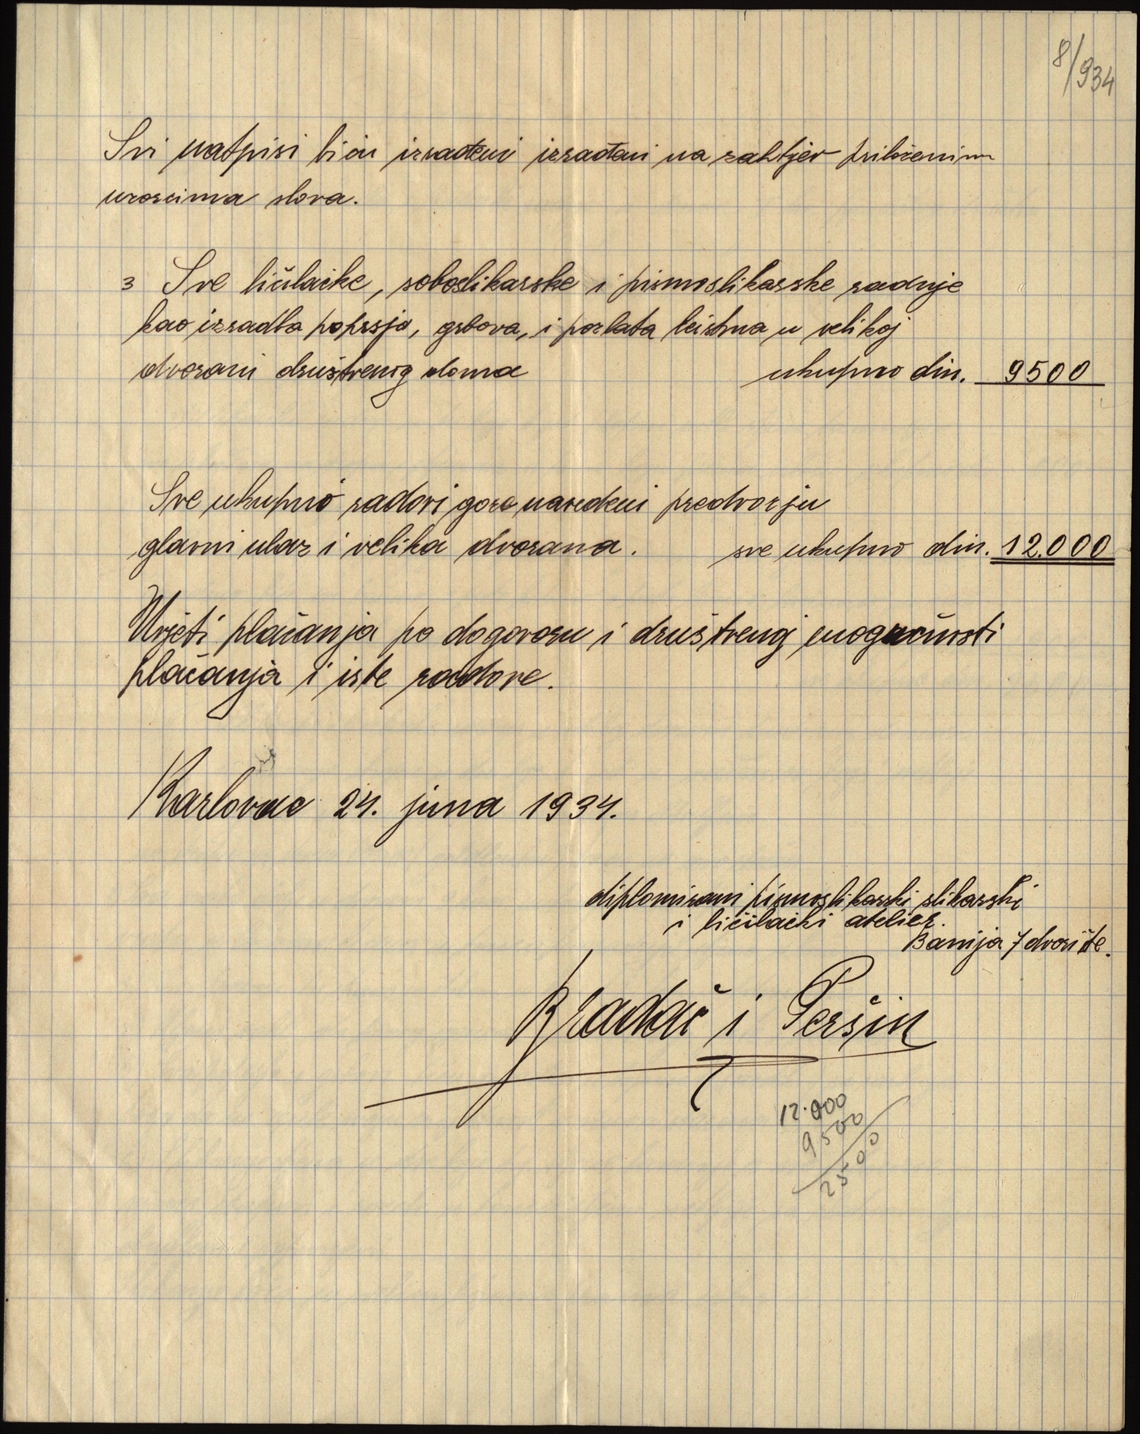 8/934
Svi natpisi biću izrađeni izrađeni na zahtjev priloženim
uzorcima slova.
3 Sve ličilačke, soboslikarske i pismoslikarske radnje
kao izradba poprsja, grbova, i pozlata leistna u velikoj
dvorani društvenog doma ukupno din. 9500
Sve ukupno radovi gore navedeni predvorju
glavni ulaz i velika dvorana. sve ukupno din. 12.000
Uvjeti plačanja po dogovoru i društvenoj mogučnosti
plačanja i iste radove.
Karlovac 24. juna 1934.
diplomirani pismoslikarski slikarski
i ličilački atelier.
Banija 7 dvorište.
Bradač i Peršin
12.000
9500
2500